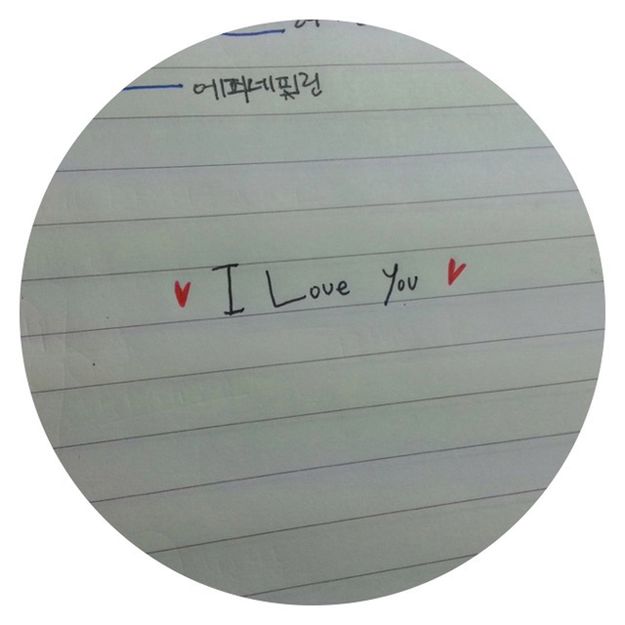 에피네프린
♥ I Love You ♥